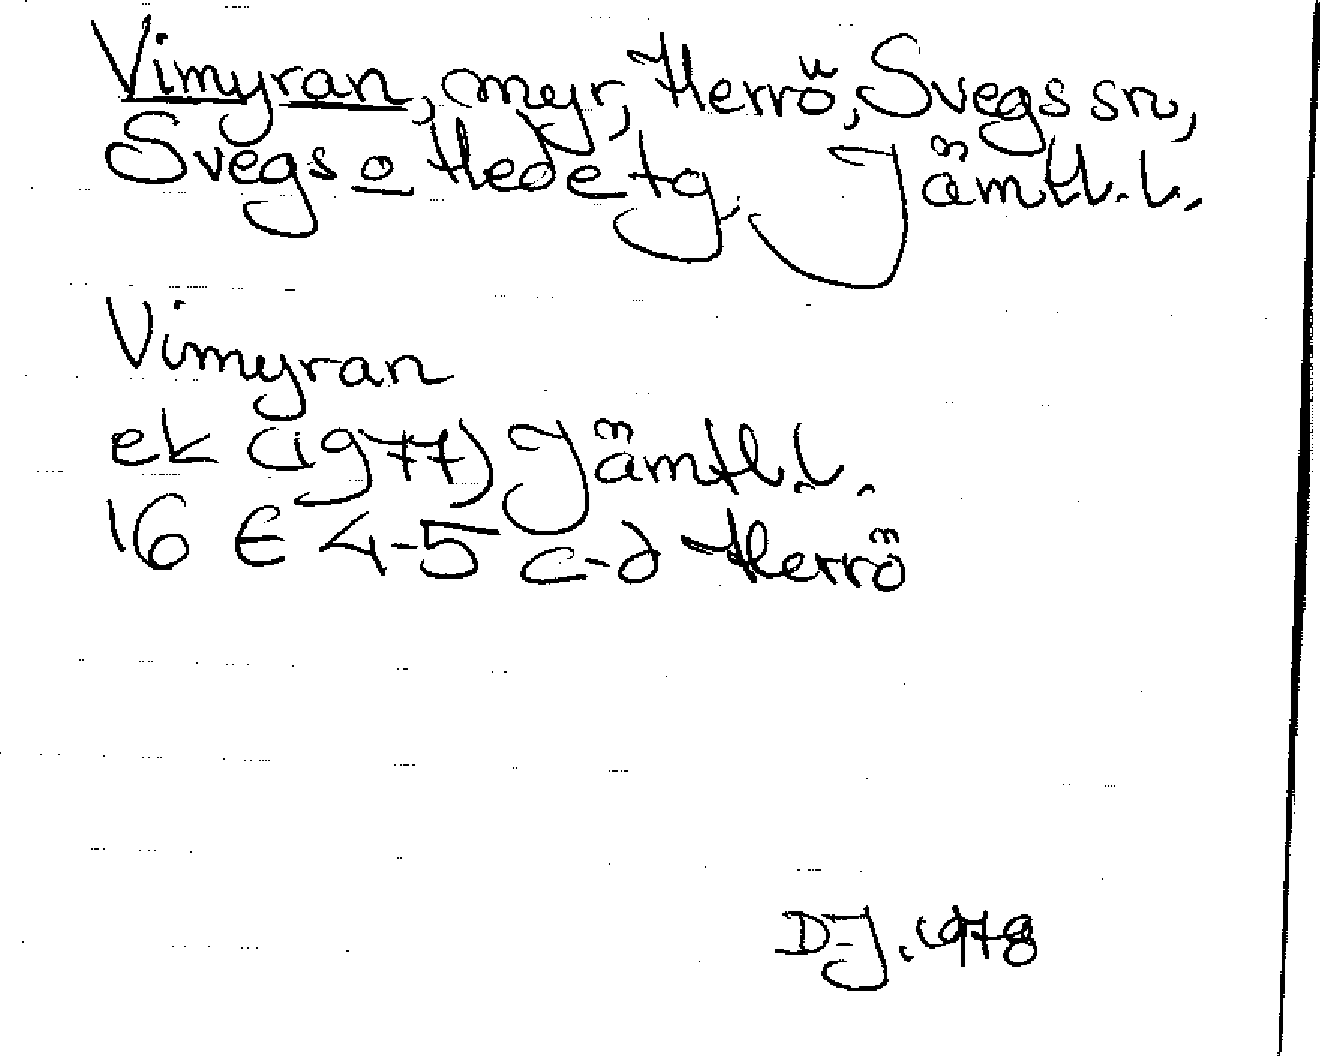 Vimyran, myr, Herrö, Svegs sn,
Svegs o Hede tg, Jämtl. l.
Vimyran
ek (1977) Jämtl. l.
16 E 4-5 c-d Herrö
DJ. 1978